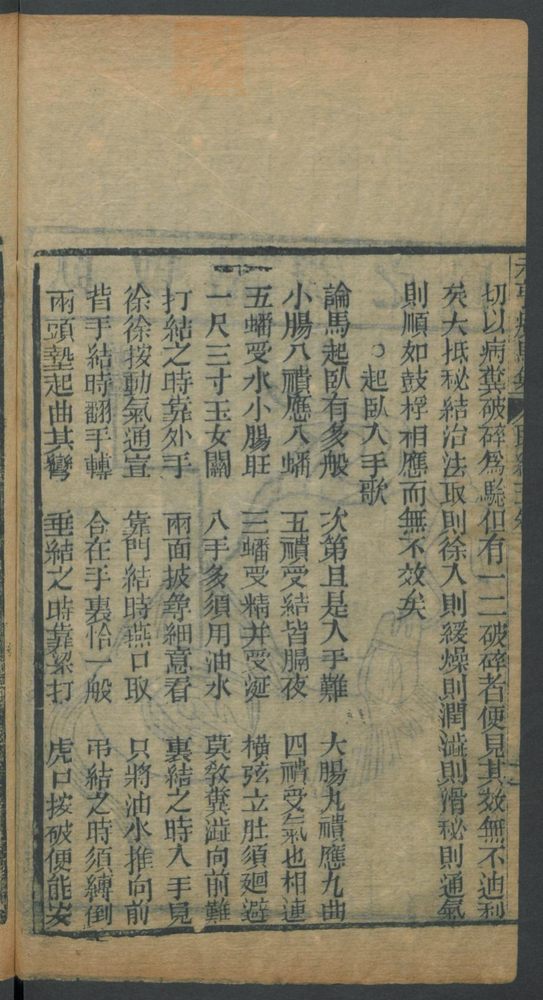 切以病糞破碎爲驗但有一二破碎者便見其效無不迪利
矣大抵秘結治法取則徐入則緩燥則潤澁則滑秘則通氣
則順如鼓桴相應而無不效矣
○起臥入手歌
論馬起臥有多般 次第且是入手難 大腸九䙡應九曲
小腸八䙡應八蟠 五䙡受結皆膈夜 四䙡受氣也相連
五蟠受水小腸旺 三蟠受精并受涎 橫弦立肚須廻避
一尺三寸玉女關 入手多須用油水 莫敎糞澁向前難
打結之時靠外手 兩面披尋細意看 裏結之時入手見
徐徐按動氣通宣 靠門結時燕口取 只將油水推向前
背手結時翻手轉 合在手裏恰一般 弔結之時須縛倒
兩頭墊起曲其彎 垂結之時靠𦡀打 虎口按破便能安